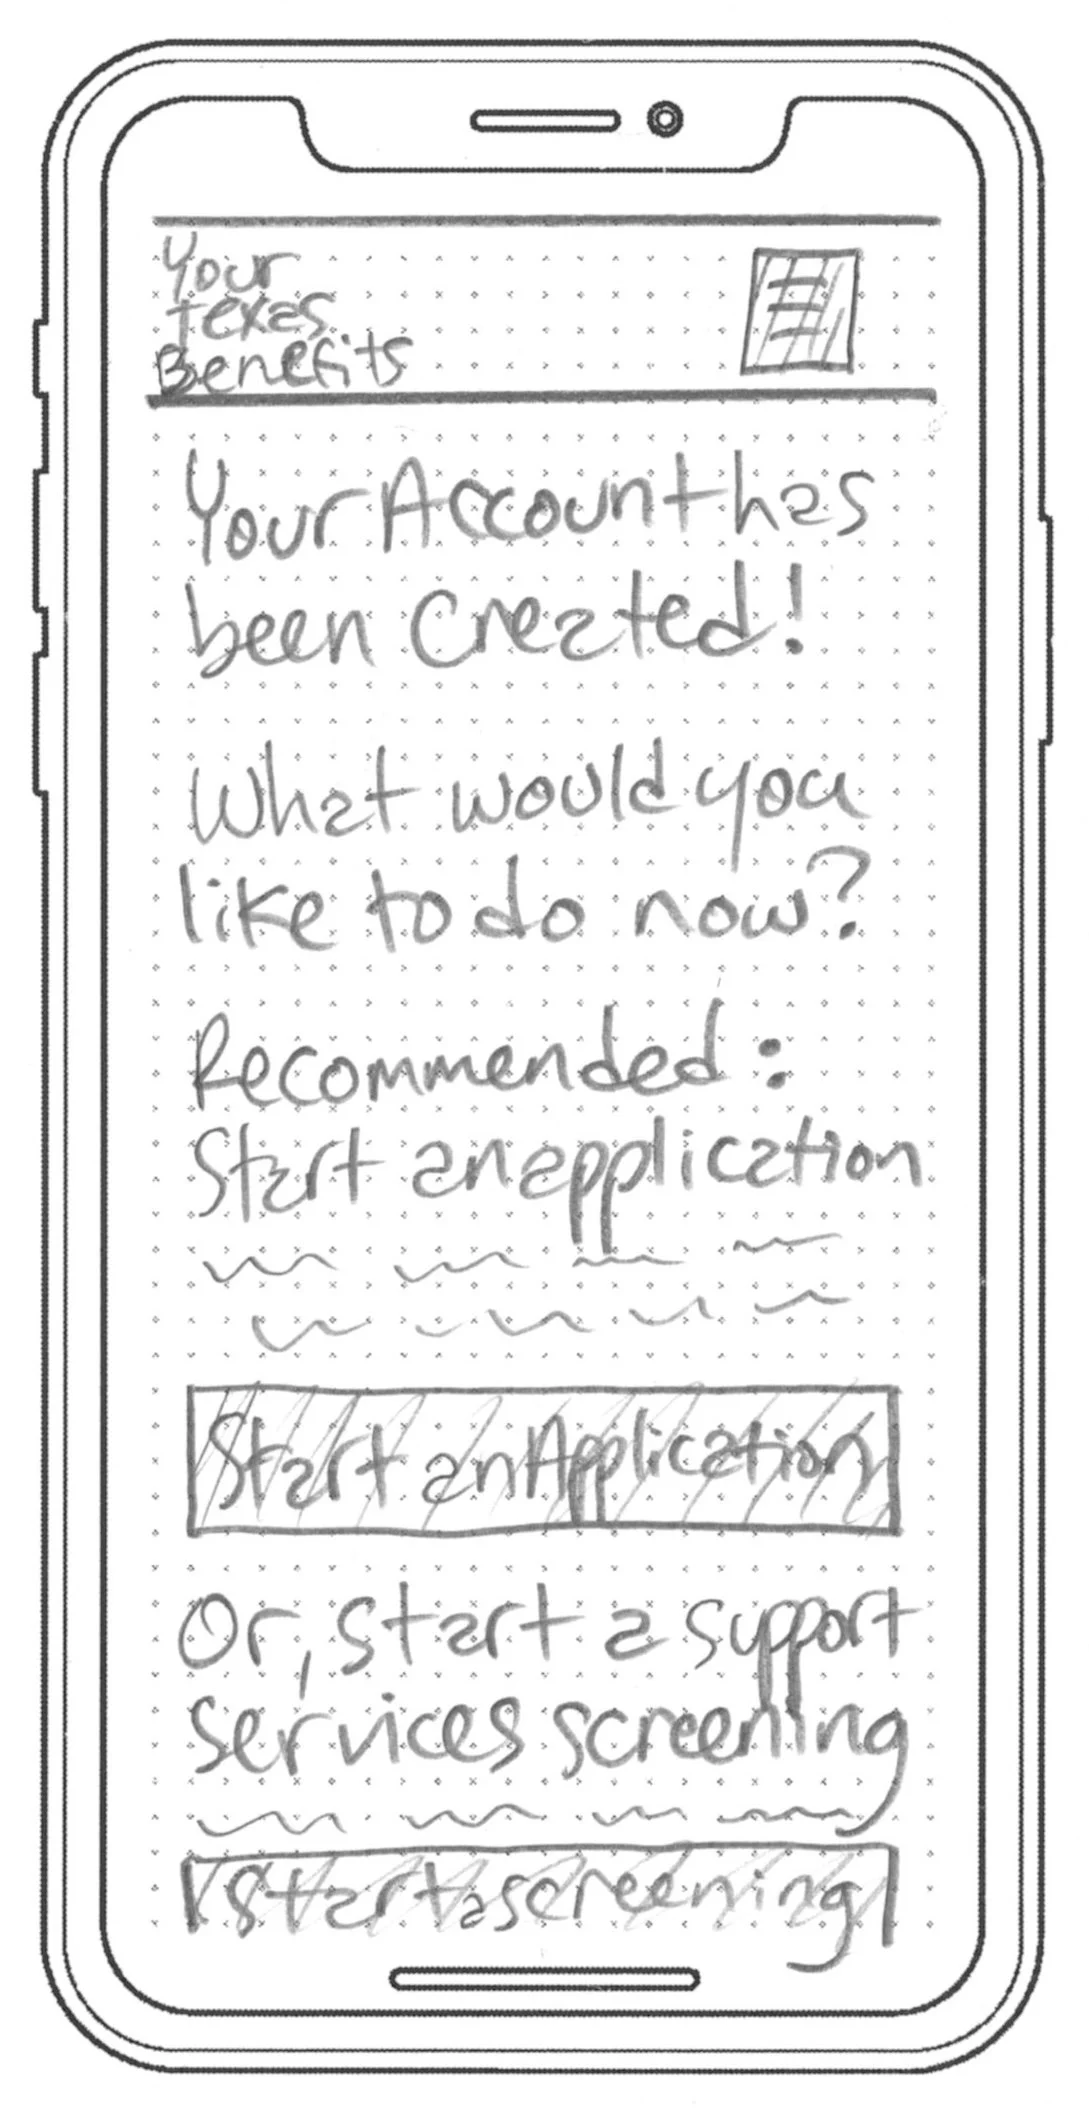 Your
Texas
Benefits
Your Account has
been Created!
What would you
like to do now?
Recommended:
Start an application
Start an Application
Or, start a support
services screening
Start a screening